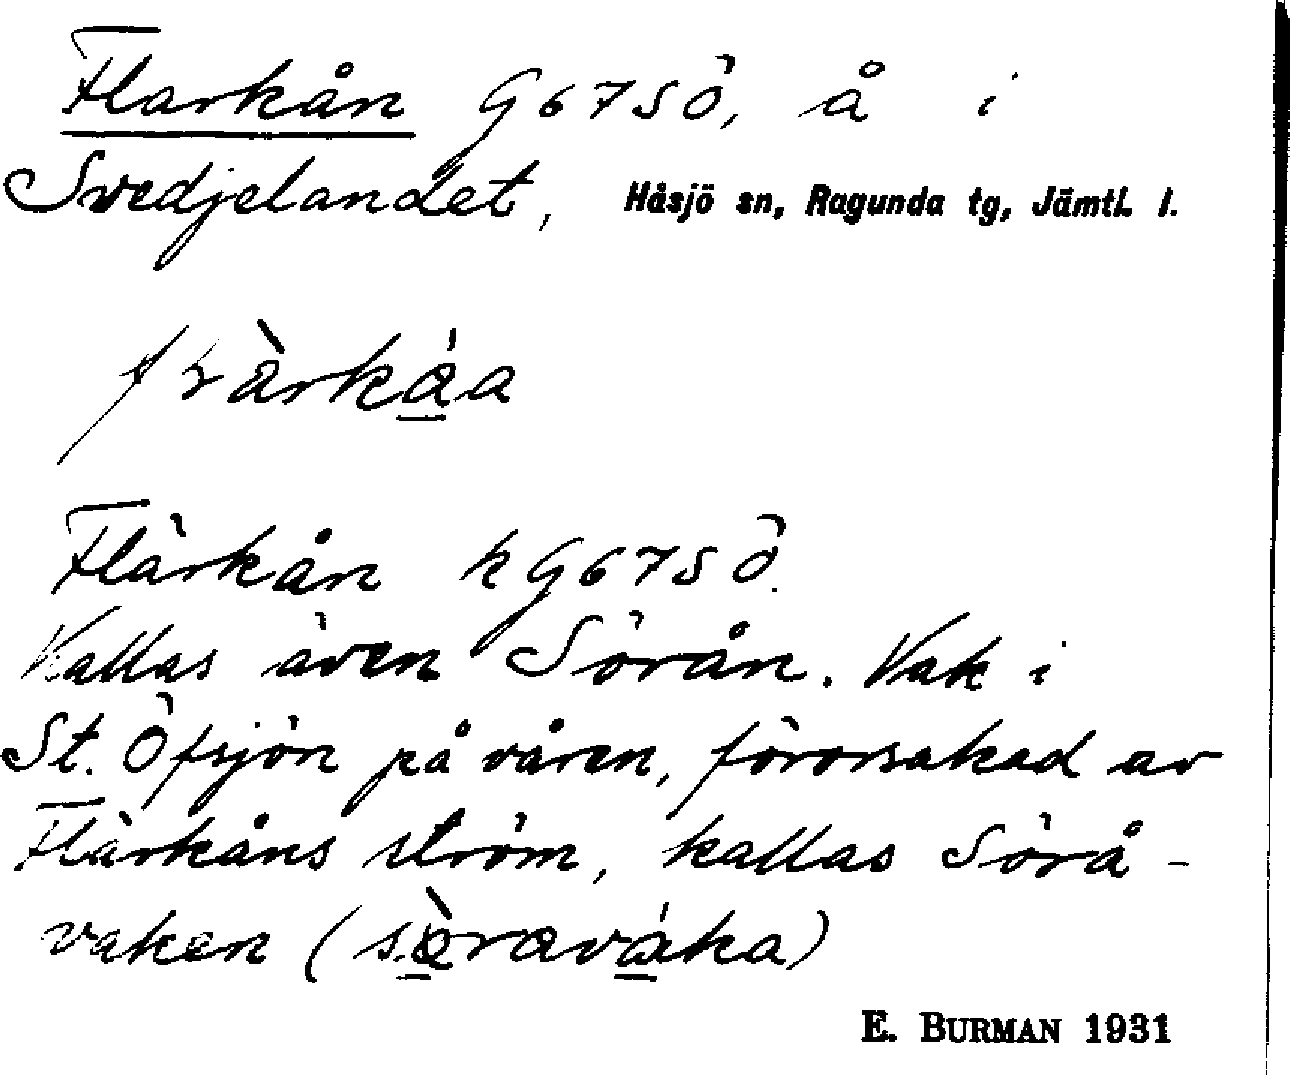 Flarkån G67SÖ, å i
Svedjelandet, Håsjö sn, Ragunda tg, Jämtl. l.
Flärkån k G67SÖ.
Kallas även Sörån. Vak i
St. Öfsjön på våren, förorsakad av
Flärkåns ström, kallas Sörå-
vaken (sòraváka)
E. BURMAN 1931